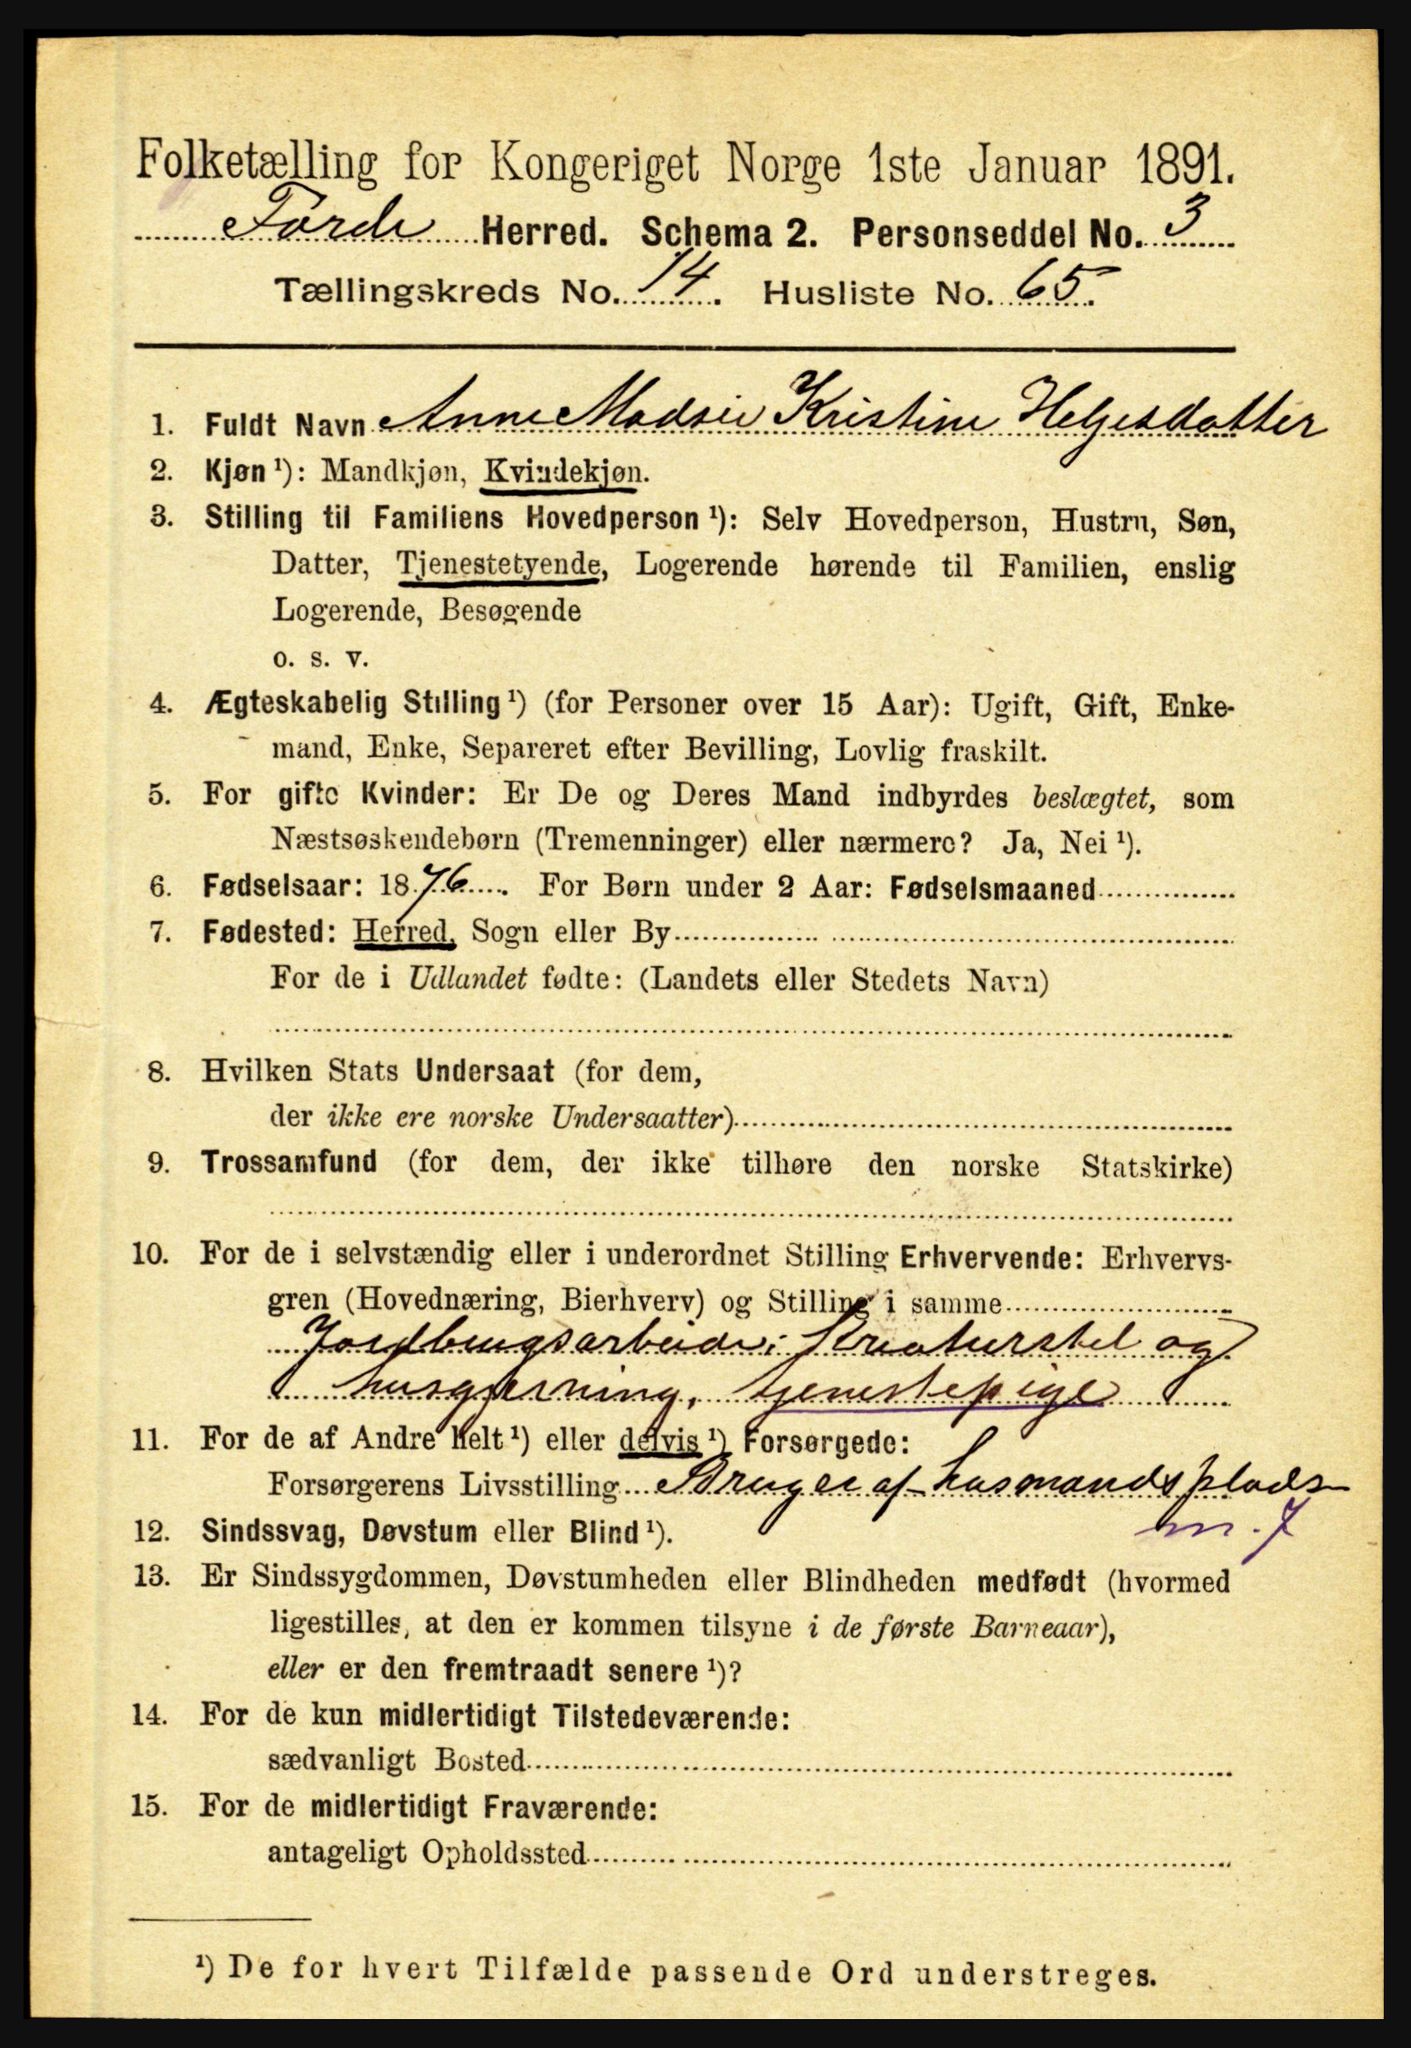 Folketælling for Kongeriget Norge 1ste Januar 1891.
Førde Herred. Schema 2. Personseddel No. 3
Tællingskreds No. 14. Husliste No. 65.
1. Fuldt Navn Anne Madsie Kristine Helgesdatter
2. Kjøn ¹): Mandkjøn, Kvindekjøn.
3. Stilling til Familiens Hovedperson ¹): Selv Hovedperson, Hustru, Søn,
Datter, Tjenestetyende, Logerende hørende til Familien, enslig
Logerende, Besøgende
o. s. v.
4. Ægteskabelig Stilling ¹) (for Personer over 15 Aar): Ugift, Gift, Enke-
mand, Enke, Separeret efter Bevilling, Lovlig fraskilt.
5. For gifte Kvinder: Er De og Deres Mand indbyrdes beslægtet, som
Næstsøskendebørn (Tremenninger) eller nærmere? Ja, Nei ¹).
6. Fødselsaar: 1876. For Børn under 2 Aar: Fødselsmaaned
7. Fødested: Herred, Sogn eller By
For de i Udlandet fødte: (Landets eller Stedets Navn)
8. Hvilken Stats Undersaat (for dem,
der ikke ere norske Undersaatter)
9. Trossamfund (for dem, der ikke tilhøre den norske Statskirke)
10. For de i selvstændig eller i underordnet Stilling Erhvervende: Erhvervs-
gren (Hovednæring, Bierhverv) og Stilling i samme
Jordbrugsarbeide, Kreaturstel og
husgjerning, tjenestepige
11. For de af Andre helt ¹) eller delvis ¹) Forsørgede:
Forsørgerens Livsstilling Bruger af husmandsplads
m. J
12. Sindssvag, Døvstum eller Blind ¹).
13. Er Sindssygdommen, Døvstumheden eller Blindheden medfødt (hvormed
ligestilles, at den er kommen tilsyne i de første Barneaar),
eller er den fremtraadt senere ¹)?
14. For de kun midlertidigt Tilstedeværende:
sædvanligt Bosted
15. For de midlertidigt Fraværende:
antageligt Opholdssted
¹) De for hvert Tilfælde passende Ord understreges.